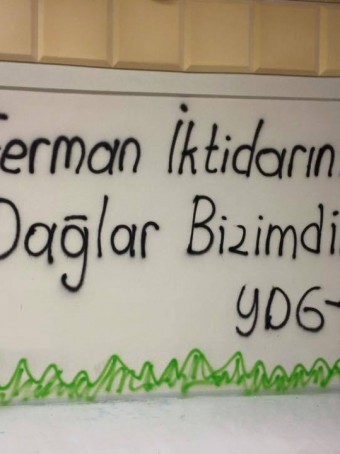 Ferman İktidarın
Dağlar Bizimdi
YDG-